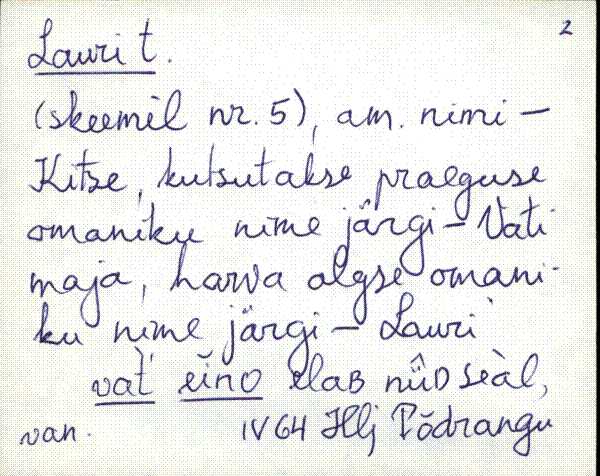 2
Lauri t.
(skeemil nr. 5), am. nimi –
Kitse, kutsutakse praeguse
omaniku nime järgi – Vati
maja, harva algse omani-
ku nime järgi – Lauri
vat̀ eino elaB nûiD seàl,
van. IV 64 Hlj Põdrangu